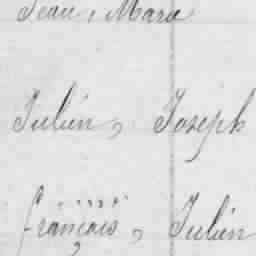 Jean, Mara
Julien, Joseph
français, Julien